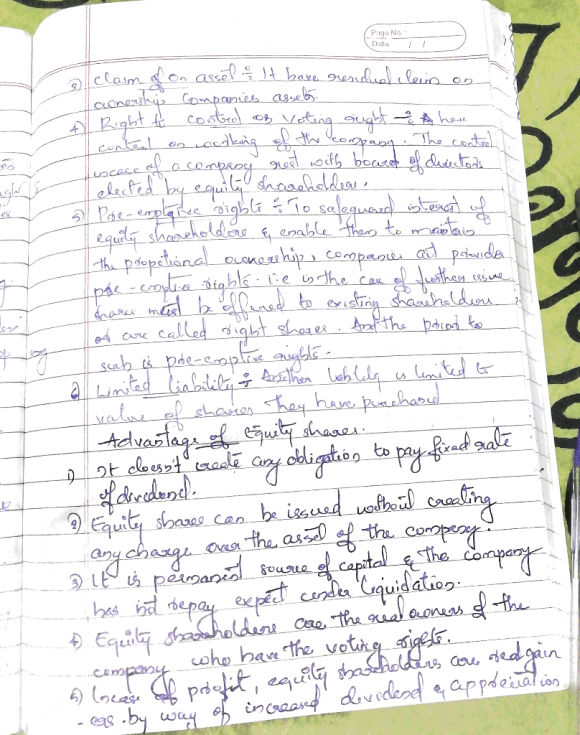 Page No :
Date / /
3) claim of on assel ÷ It have residual claim on
ownership companies assets.
4) Right to control or voting right ÷ A have
control on working of the company. The control
incase of a company rest with board of directors
elected by equity shareholders.
5) Pre-emptive rights ÷ To safeguard interest of
equity shareholders & enable them to maintain
the propotional ownership, companies act provides
pre-emptive rights. i.e in the case of further issue
shares must be offered to existing shareholders
are called right shares. And the priod to
such is pre-emptive rights.
6) Limited liability ÷ liability is limited to
value of shares they have purchased
Advantage of Equity shares.
1) It doesn't create any obligation to pay fixed rate
of dividend.
2) Equity shares can be issued without creating
any charge over the assel of the company.
3) It is permanent source of capital & the company
has not repay expect under liquidation.
4) Equity shareholders are the real owners of the
company who have the voting rights.
5) Incase of profit, equity shareholders are real gain
-ers by way of increased dividend & appreciation